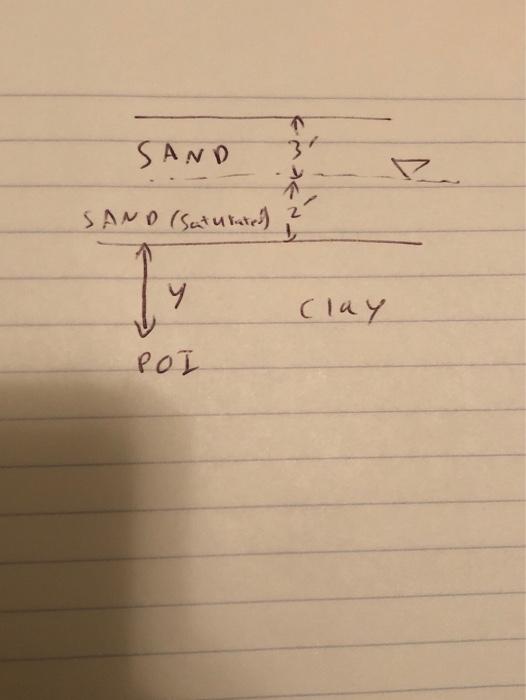 3'
SAND
SAND (Saturated) 2'
y
Clay
POI